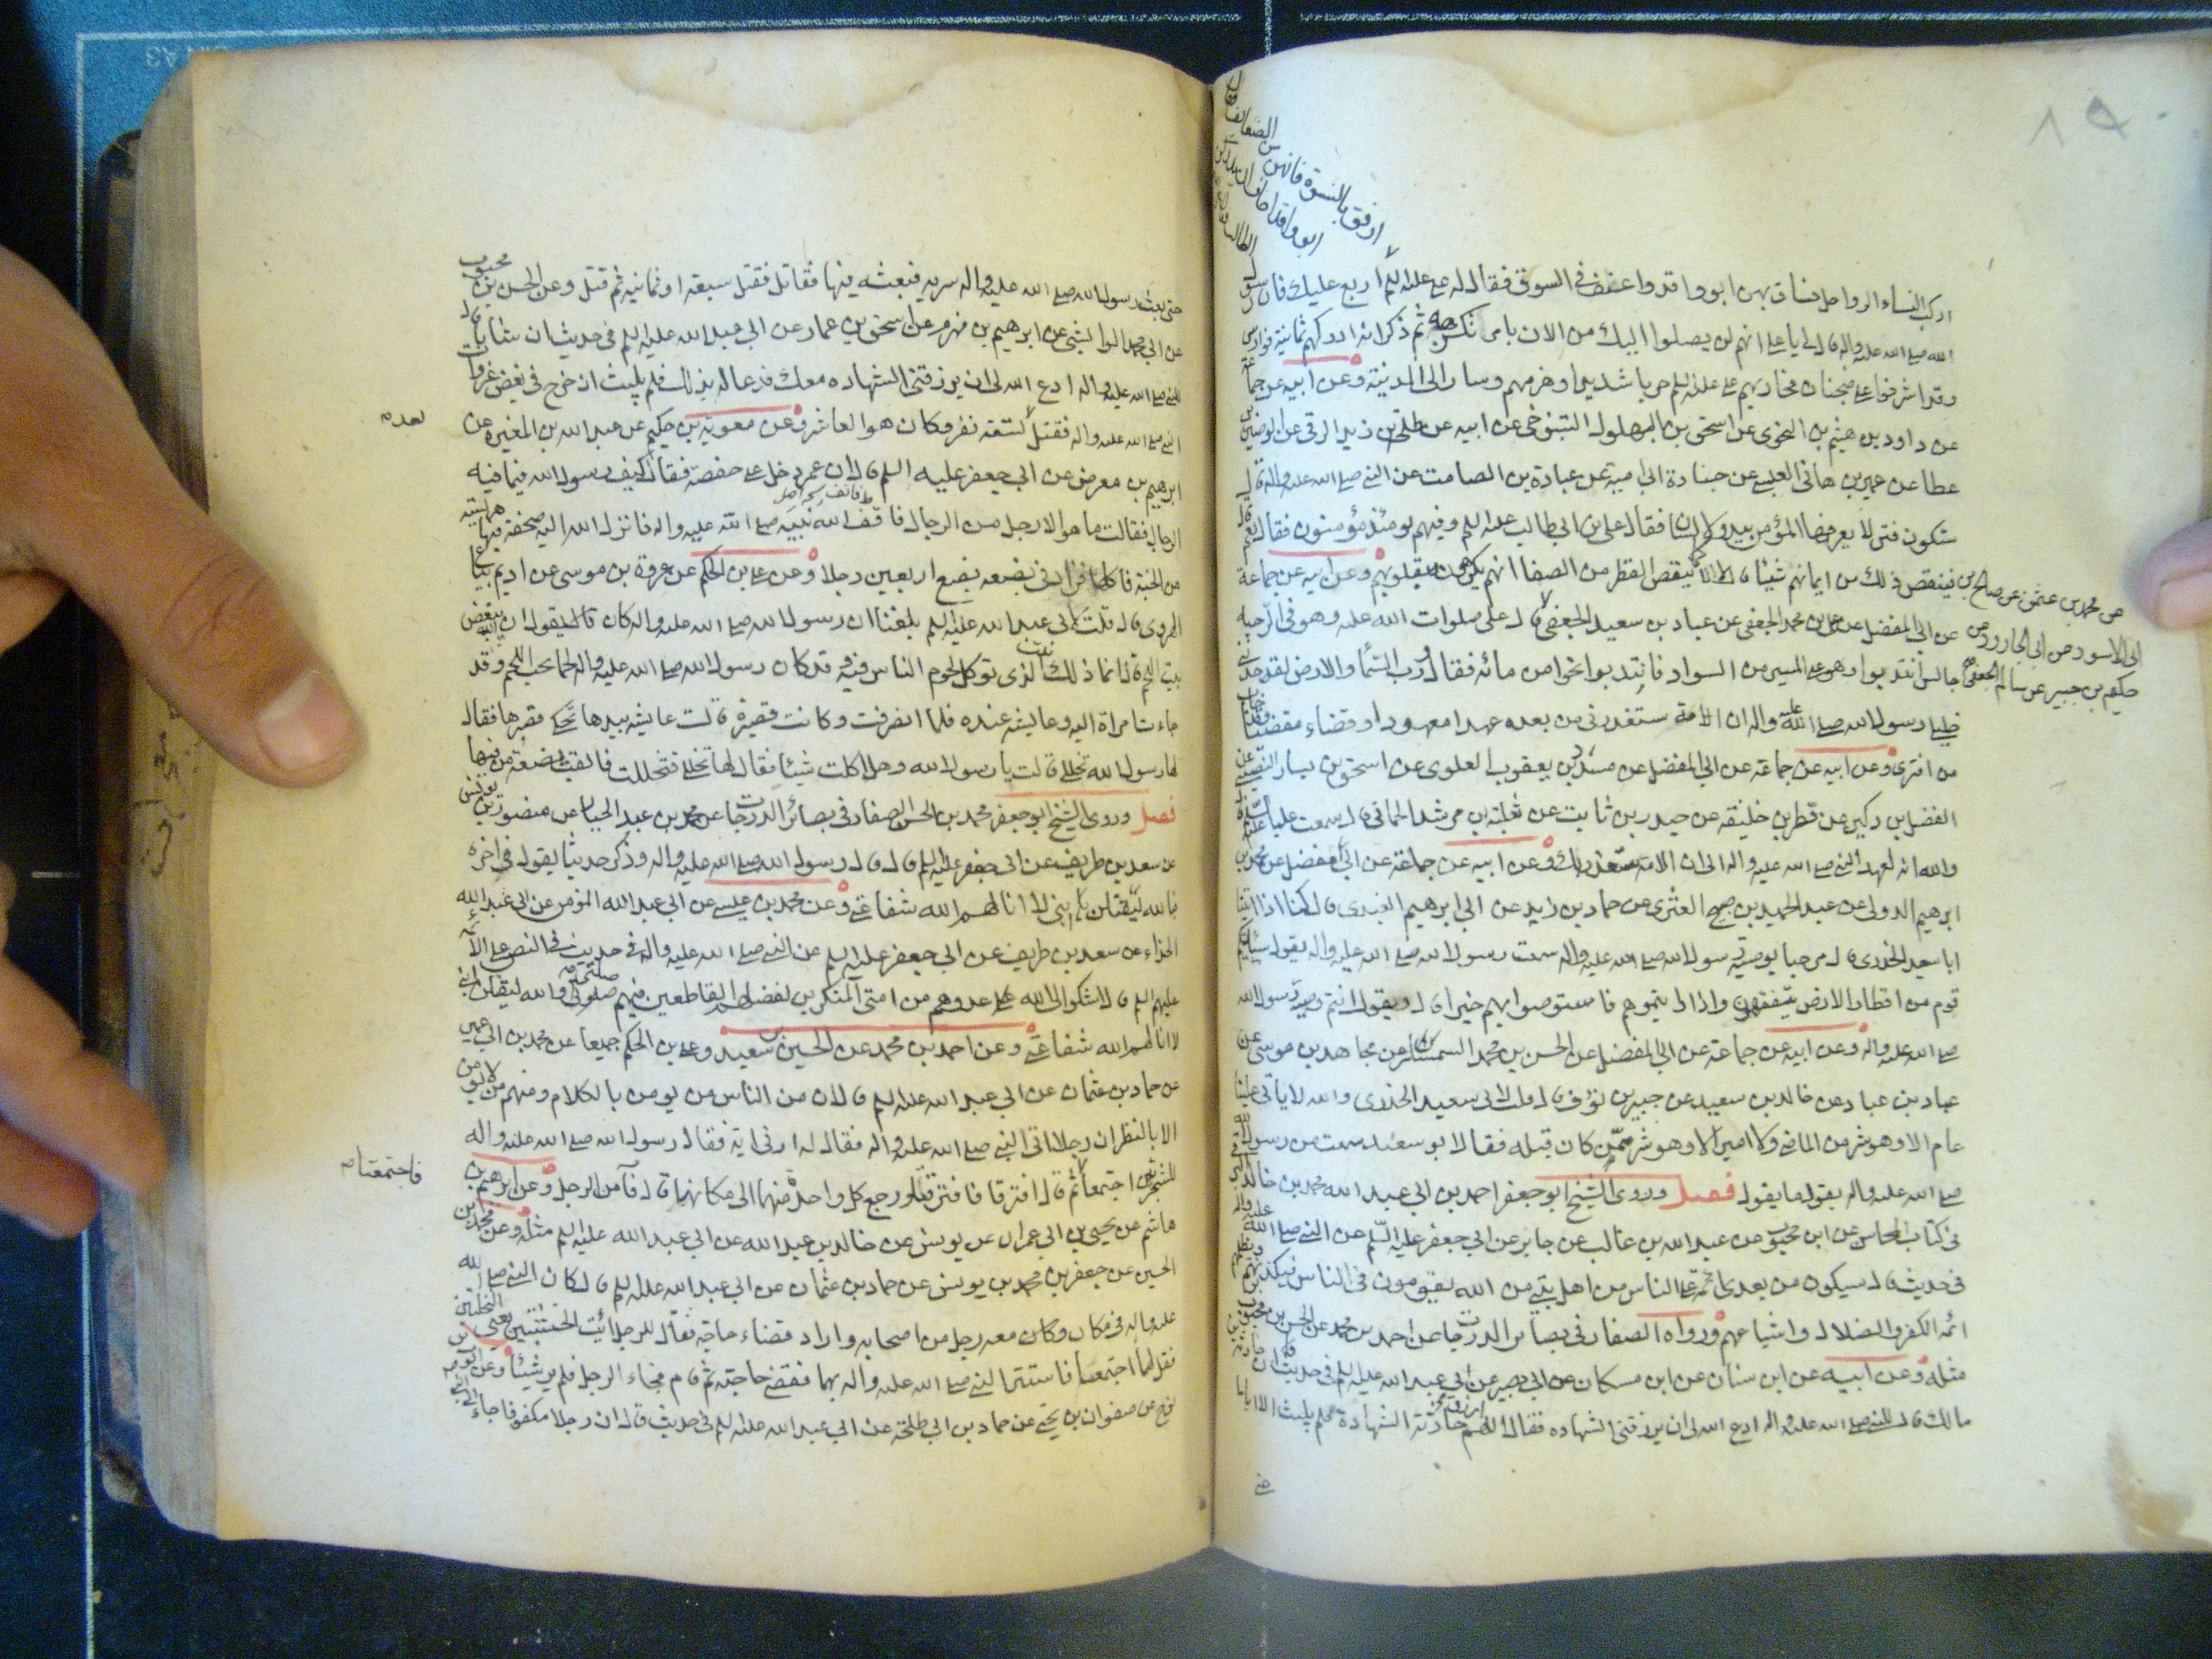 اركب النساء الرواحل فساق بهن ابو واقد واعنف في السوق فقال له علي عليه السلم اربع عليك فان رسول
الله صلى الله عليه واله قال لي يا علي انهم لن يصلوا اليك من الان بامر تكرهه ثم ذكر انه ادركهم ثمانية فوارس
وقد اشرفوا على ضجنان فحاربهم علي عليه السلم حربا شديدا وهزمهم وسار الى المدينة وعن ابيه عن جماعة
عن داود بن هيثم بن النحوي عن اسحق بن البهلول التنوخي عن ابيه عن طلحة بن زيد الرقي عن الوضين بن
عطا عن عمير بن هاني العبسي عن جنادة ابي امية عن عبادة بن الصامت عن النبي صلى الله عليه واله قال
ستكون فتن لا يعرضها المؤمن بيد ولا لسان فقال علي بن ابي طالب عليه السلم وفيهم يومئذ مؤمنون فقال نعم
فينقص ذلك من ايمانهم شيئا قال لا الا كما ينقص القطر من الصفا انهم يكرهونه بقلوبهم وعن ابيه عن جماعة
عن ابي المفضل عن علي بن محمد الجعفي عن عباد بن سعيد الجعفي
عن محمد بن عثمن عن صالح بن
ابي الاسود عن ابي الجارود عن
حكيم بن جبير عن سالم الجعفي
قال علي صلوات الله عليه وهو في الرحبة
جالس انتدبوا وهو على المسير من السواد فانتدبوا نحوا من مائة فقال ورب السماء والارض لقد حدثني
خليلي رسول الله صلى الله عليه واله ان الامة ستغدر بي من بعده عهدا معهودا وقضاء مقضيا وقد خاب
من افترى وعن ابيه عن جماعة عن ابي المفضل عن مسدد بن يعقوب العلوي عن اسحق بن يسار النصيبي عن
الفضل بن دكين عن قطر بن خليفه عن حيدر بن ثابت عن ثعلبة بن مرثد الحماني قال سمعت عليا عليه
والله انه لعهد النبي صلى الله عليه واله الي ان الامة ستغدر بك وعن ابيه عن جماعة عن ابي المفضل عن محمد بن
ابرهيم الدولى عن عبد الحميد بن صبح العنزى عن حماد بن زيد عن ابي ابرهيم العبدى قال كنا اذا اتينا
ابا سعيد الخدرى قال مرحبا بوصية رسول الله صلى الله عليه واله سمعت رسول الله صلى الله عليه واله يقول سيأتيكم
قوم من اقطار الارض يتفقهون واذا رايتموهم فاستوصوا بهم خيرا قال ويقول انتم وصية رسول الله
صلى الله عليه واله وعن ابيه عن جماعة عن ابي المفضل عن الحسن بن محمد عن مجاهد بن موسى عن
عباد بن عباد عن خالد بن سعيد عن جبير بن نوف قال قلت لابي سعيد الخدرى والله لا ياتي علينا
عام الا وهو شر من الماضي ولا امير الا وهو شر ممن كان قبله فقال ابو سعيد سمعت من رسول الله
صلى الله عليه واله يقول ما يقول فصل وروى الشيخ ابو جعفر احمد بن ابي عبد الله محمد بن خالد البرقي
في كتاب المحاسن عن ابن محبوب عن عبد الله بن غالب عن جابر عن ابي جعفر عليه السلم عن النبي صلى الله عليه واله
في حديث قال سيكون من بعدى ائمة على الناس من اهل بيتي من الله يقومون في الناس فيكذبونهم ويظلمهم
ائمة الكفر والضلال واشياعهم ورواه الصفار في بصائر الدرجات عن احمد بن محمد عن الحسن بن محبوب
مثله وعن ابيه عن ابن سنان عن ابن مسكان عن ابي بصير عن ابي عبد الله عليه السلم في حديث ان حارثة بن
مالك قال للنبي صلى الله عليه واله ادع الله لي ان يرزقني الشهاده فقال اللهم ارزق حارثة الشهادة فلم يلبث الا اياما
حتى بعث رسول الله صلى الله عليه واله سرية فبعثه فيها فقاتل فقتل سبعة او ثمانية ثم قتل وعن الحسن بن محبوب
عن ابي محمد الوابشي عن ابرهيم بن مهزم عن اسحق بن عمار عن ابي عبد الله عليه السلم في حديث ان شابا قال
للنبي صلى الله عليه واله ادع الله لي ان يرزقني الشهاده معك فدعا له بذلك فلم يلبث ان خرج في بعض غزوات
النبي صلى الله عليه واله فقتل لتسعة نفر وكان هو العاشر وعن معوية بن حكيم عن عبد الله بن المغيرة عن
بعده
ابرهيم بن معرض عن ابي جعفر عليه السلم قال ان عمر دخل على حفصة فقال كيف رسول الله فيما فيه
الرجال فقالت ما هو الا رجل من الرجال فانف الله لنبيه صلى الله عليه واله فانزل الله اليه صحفة فيها هريسة
من الجنة فاكلها فزاد في بضعه بضع اربعين رجلا وعن علي بن الحكم عن عروة بن موسى عن اديم بياع
الهروى قال قلت لابي عبد الله عليه السلم بلغنا ان رسول الله صلى الله عليه واله كان قال يقول ان الله يبغض
بيت اللحم قال انما ذلك البيت الذي توكل لحوم الناس فيه وقد كان رسول الله صلى الله عليه واله لحما يحب اللحم وقد
جاءت امراة اليه وعايشة عنده فلما انصرفت وكانت قصيرة قالت عايشة بيدها تحكي قصرها فقال
لها رسول الله تخللي قالت يا رسول الله وهل اكلت شيئا فقال لها تخللي فتخللت فالقت مضغة من فيها
فصل وروى الشيخ ابو جعفر محمد بن الحسن الصفار في بصائر الدرجات عن محمد بن عبد الجبار عن منصور بن يونس
عن سعد بن طريف عن ابي جعفر عليه السلم قال قال رسول الله صلى الله عليه واله وذكر حديثا يقول في اخره
بالله ليقتلن ابني لا انالهم الله شفاعتي وعن محمد بن عيسى عن ابي عبد الله المؤمن عن ابي عبد الله
الحذاء عن سعد بن طريف عن ابي جعفر عليه السلم عن النبي صلى الله عليه واله في حديث في النص على الائمة
عليهم السلم قال اشكو الى الله عدوهم من امتي المنكرين لفضلهم القاطعين فيهم صلتي والله ليقتلن ابني
لا انالهم الله شفاعتي وعن احمد بن محمد عن الحسين بن سعيد وعلي بن الحكم جميعا عن محمد بن ابي عمير
عن حماد بن عثمان عن ابي عبد الله عليه السلم قال ان من الناس من يومن بالكلام ومنهم من لا يومن
الا بالنظر ان رجلا اتى النبي صلى الله عليه واله فقال له ارني اية فقال رسول الله صلى الله عليه واله
لشجرتين اجتمعا ثم قال افترقا فافترقتا ورجع كل واحدة منهما الى مكانهما قال فآمن الرجل وعن ابرهيم بن
فاجتمعتا
هاشم عن يحيى بن ابي عمران عن يونس عن خالد بن عبد الله عن ابي عبد الله عليه السلم مثله وعن محمد بن
الحسين عن جعفر بن محمد بن يونس عن حماد بن عثمان عن ابي عبد الله عليه السلم قال كان النبي صلى الله
عليه واله في مكان وكان معه رجل من اصحابه واراد قضاء حاجة فقال للرجل ائت الخشبتين يعني النخلتين
فقل لهما اجتمعا فاستتر النبي صلى الله عليه واله بهما فقضى حاجته ثم قام فجاء الرجل فلم ير شيئا وعن
نوح عن صفوان بن يحيى عن حماد بن ابي طلحة عن ابي عبد الله عليه السلم في حديث قال ان رجلا مكفوفا جاء الى النبي